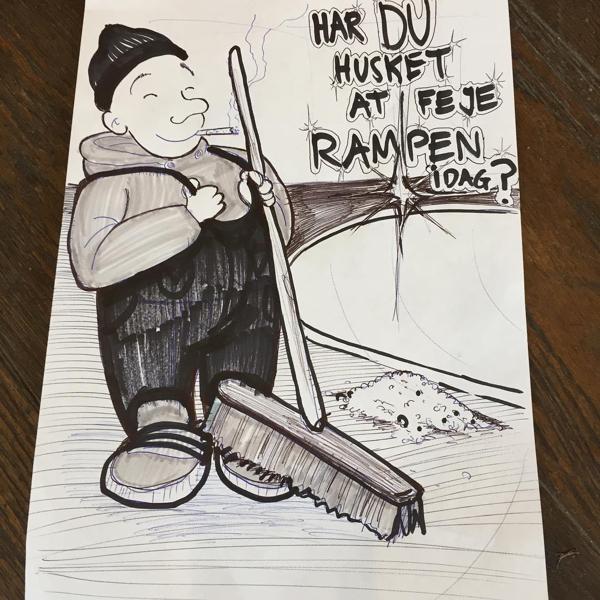 HAR DU
HUSKET
AT FEJE
RAMPEN
iDAG?